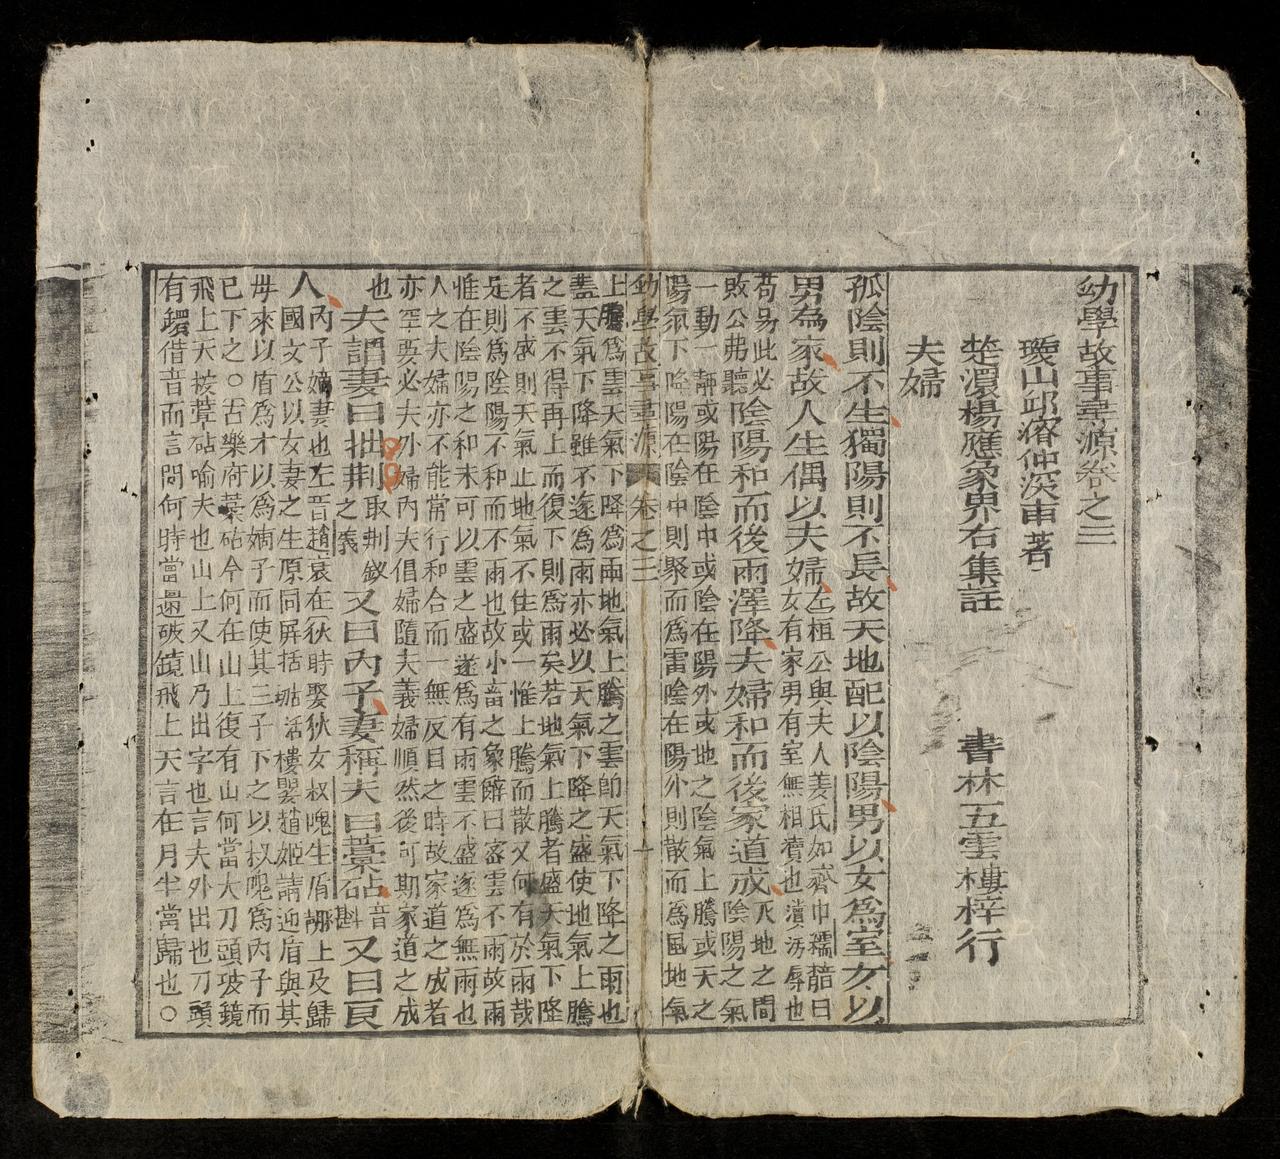 幼學故事尋源卷之三
瓊山邱濬仲深甫著
楚澴楊應象界右集註 書林五雲樓梓行
夫婦
孤陰則不生獨陽則不長故天地配以陰陽男以女爲室女以
男為家故人生偶以夫婦左桓公與夫人姜氏如齊巾繻諳曰
女有家男有室無相瀆也瀆汚辱也
苟易此必
敗公弗聽陰陽和而後雨澤降夫婦和而後家道成天地之間
陰陽之氣
一動一靜或陽在陰中或陰在陽外或地之陰氣上騰或天之
陽氣下降陽在陰中則聚而爲雷陰在陽外則散而爲風地氣
幼學故事尋源 卷之三 一
上騰爲雲天氣下降爲雨地氣上騰之雲卽天氣下降之雨也
蓋天氣下降雖不遂爲雨亦必以天氣下降之盛使地氣上騰
之雲不得再上而復下則爲雨矣若地氣上騰者盛天氣下降
者不感則天氣止地氣不住或一惟上騰而散又何有於雨哉
足則爲陰陽不和而不雨也故小畜之象繇曰密雲不雨故雨
惟在陰陽之和未可以雲之盛遂爲有雨雲不盛遂爲無雨也
人之夫婦亦不能常行和合而一無反目之時故家道之成者
亦罕要必夫外婦內夫倡婦隨夫義婦順然後可期家道之成
也夫謂妻曰拙荆取荆釵之儀又曰內子妻稱夫曰藁砧音斟又曰良
人內子嫡妻也左晋趙衰在狄時娶狄女叔隗生盾那上及歸
國文公以女妻之生原同屏括坳活樓嬰趙姬請迎盾與其
毋來以盾爲才以爲嫡子而使其三子下之以叔隗爲內子而
已下之○古樂府藁砧今何在山上復有山何當大刀頭破鏡
飛上天按藁砧喻夫也山上又山乃出字也言夫外出也刀頭
有鐶借音而言問何時當還破鏡飛上天言在月半當歸也○